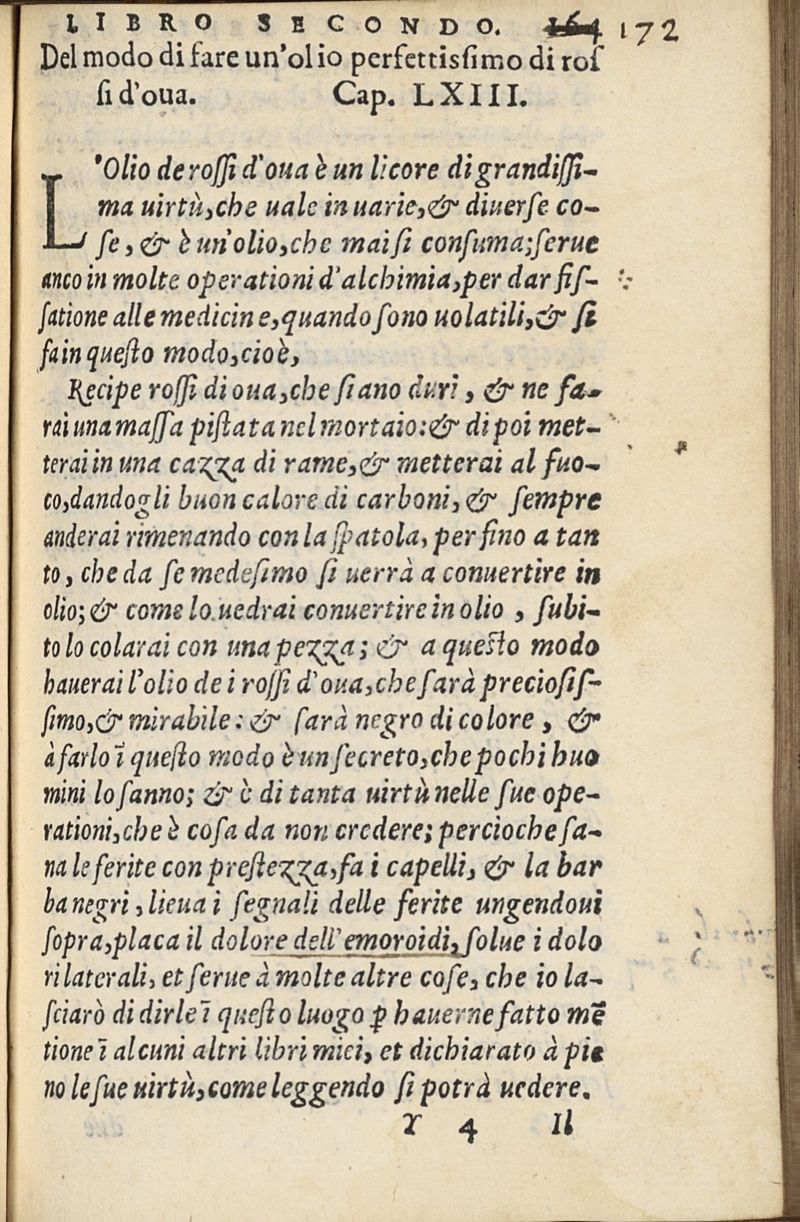 LIBRO SECONDO. 164 172
Del modo di fare un'olio perfettissimo di ros
si d'oua. Cap. LXIII.
L'Olio de rossi d'oua è un licore di grandissi-
ma uirtù, che uale in uarie, & diuerse co-
se, & è un'olio, che mai si consuma; serue
anco in molte operationi d'alchimia, per dar fis-
satione alle medicine, quando sono uolatili, & si
fa in questo modo, cioè,
Recipe rossi di oua, che siano duri, & ne fa-
rai una massa pistata nel mortaio: & di poi met-
terai in una cazza di rame, & metterai al fuo-
co, dandogli buon calore di carboni, & sempre
anderai rimenando con la spatola, per fino a tan
to, che da se medesimo si uerrà a conuertire in
olio; & come lo uedrai conuertire in olio, subi-
to lo colarai con una pezza; & a questo modo
hauerai l'olio de i rossi d'oua, che sarà preciosis-
simo, & mirabile: & sarà negro di colore, &
à farlo ī questo modo è un secreto, che pochi huo
mini lo sanno; & è di tanta uirtù nelle sue ope-
rationi, che è cosa da non credere; percioche sa-
na le ferite con prestezza, fa i capelli, & la bar
ba negri, lieua i segnali delle ferite ungendoui
sopra, placa il dolore dell'emoroidi, solue i dolo
ri laterali, et serue à molte altre cose, che io la-
sciarò di dirle ī questo luogo ꝑ hauerne fatto mē
tione ī alcuni altri libri miei, et dichiarato à pie
no le sue uirtù, come leggendo si potrà uedere.
Y 4 Il